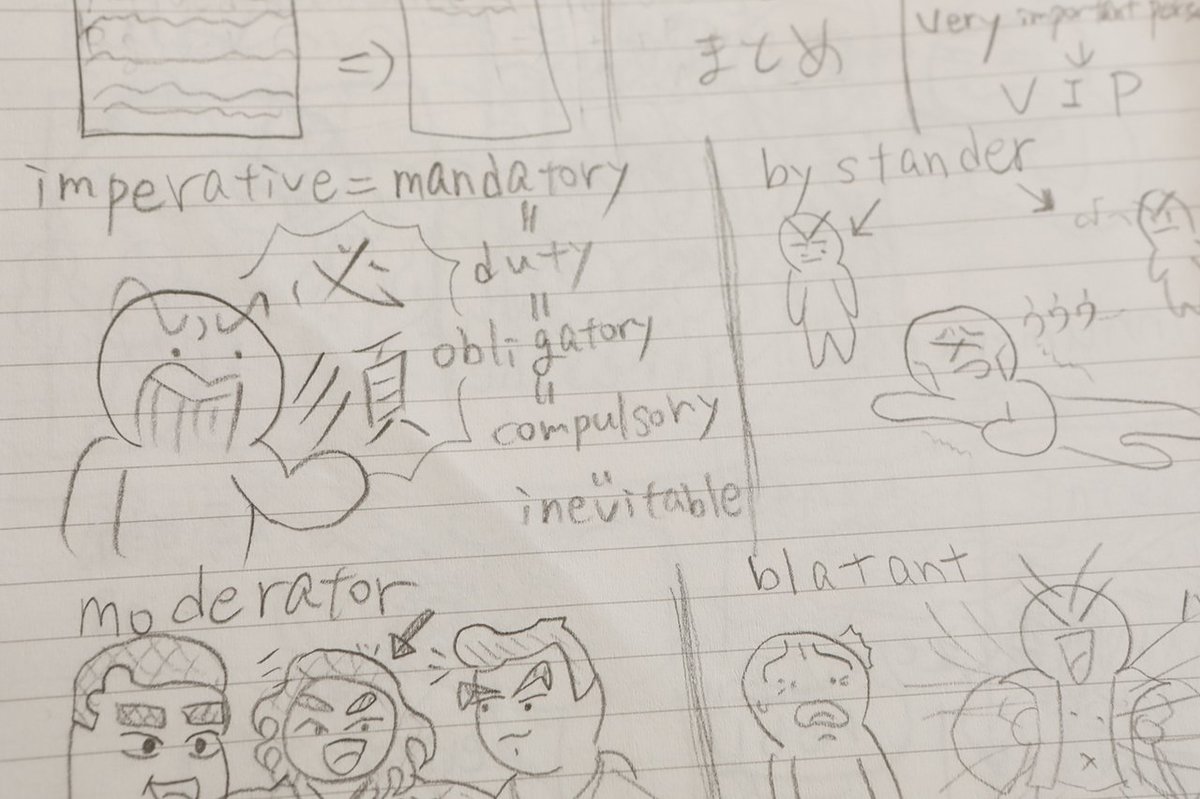 まとめ
very important
VIP
imperative = mandatory
=
duty
=
obligatory
=
compulsory
=
inevitable
必
須
bystander
ううう
moderator
blatant